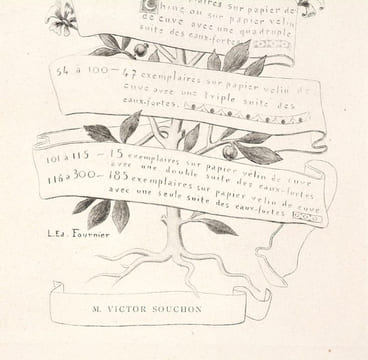 exemplaires sur papier de
Chine ou sur papier vélin
de cuve avec une quadruple
suite des eaux-fortes
54 à 100 — 47 exemplaires sur papier velin de
cuve avec une triple suite des
eaux-fortes.
101 à 115 — 15 exemplaires sur papier vélin de cuve
avec une double suite des eaux-fortes
116 à 300 — 185 exemplaires sur papier velin de cuve
avec une seule suite des eaux-fortes
L.Ed. Fournier
M. VICTOR SOUCHON